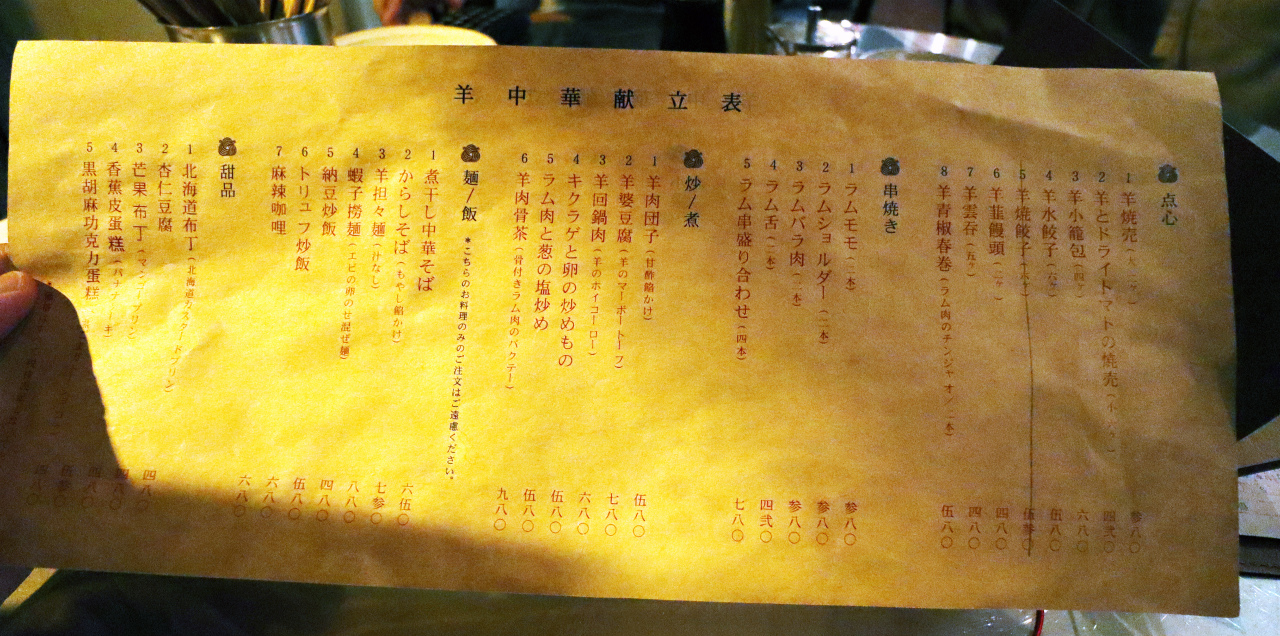 羊中華献立表
点心
1 羊焼売
2 羊とドライトマトの焼売
3 羊小籠包(四ヶ)
4 羊水餃子(六ヶ)
5 羊焼餃子
6 羊韮饅頭(二ヶ)
7 羊雲呑(五ヶ)
8 羊青椒春巻(ラム肉のチンジャオ/二本)
参八〇
四弐〇
六八〇
伍八〇
伍参〇
四八〇
四八〇
伍八〇
串焼き
1 ラムモモ(二本)
2 ラムショルダー(二本)
3 ラムバラ肉(二本)
4 ラム舌(二本)
5 ラム串盛り合わせ(四本)
参八〇
参八〇
参八〇
四弐〇
七八〇
炒/煮
1 羊肉団子(甘酢餡かけ)
2 羊婆豆腐(羊のマーボートーフ)
3 羊回鍋肉(羊のホイコーロー)
4 キクラゲと卵の炒めもの
5 ラム肉と葱の塩炒め
6 羊肉骨茶(骨付きラム肉のバクテー)
伍八〇
七八〇
六八〇
伍八〇
伍八〇
九八〇
麺/飯 *こちらのお料理のみのご注文はご遠慮ください。
1 煮干し中華そば
2 からしそば(もやし餡かけ)
3 羊担々麺(汁なし)
4 蝦子撈麺(エビの卵のせ混ぜ麺)
5 納豆炒飯
6 トリュフ炒飯
7 麻辣咖哩
六伍〇
七参〇
八八〇
四八〇
伍八〇
六八〇
六八〇
甜品
1 北海道布丁(北海道カスタードプリン)
2 杏仁豆腐
3 芒果布丁(マンゴープリン)
4 香蕉皮蛋糕(バナナケーキ)
5 黒胡麻功克力蛋糕
四八
四八〇